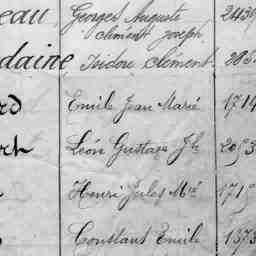 eau Georges Auguste
clément joseph
daine Isidore clément
rd Emile Jean Marie 1714
Léon Gustave Jh
Henri Jules Mie
Constant Emile 1373